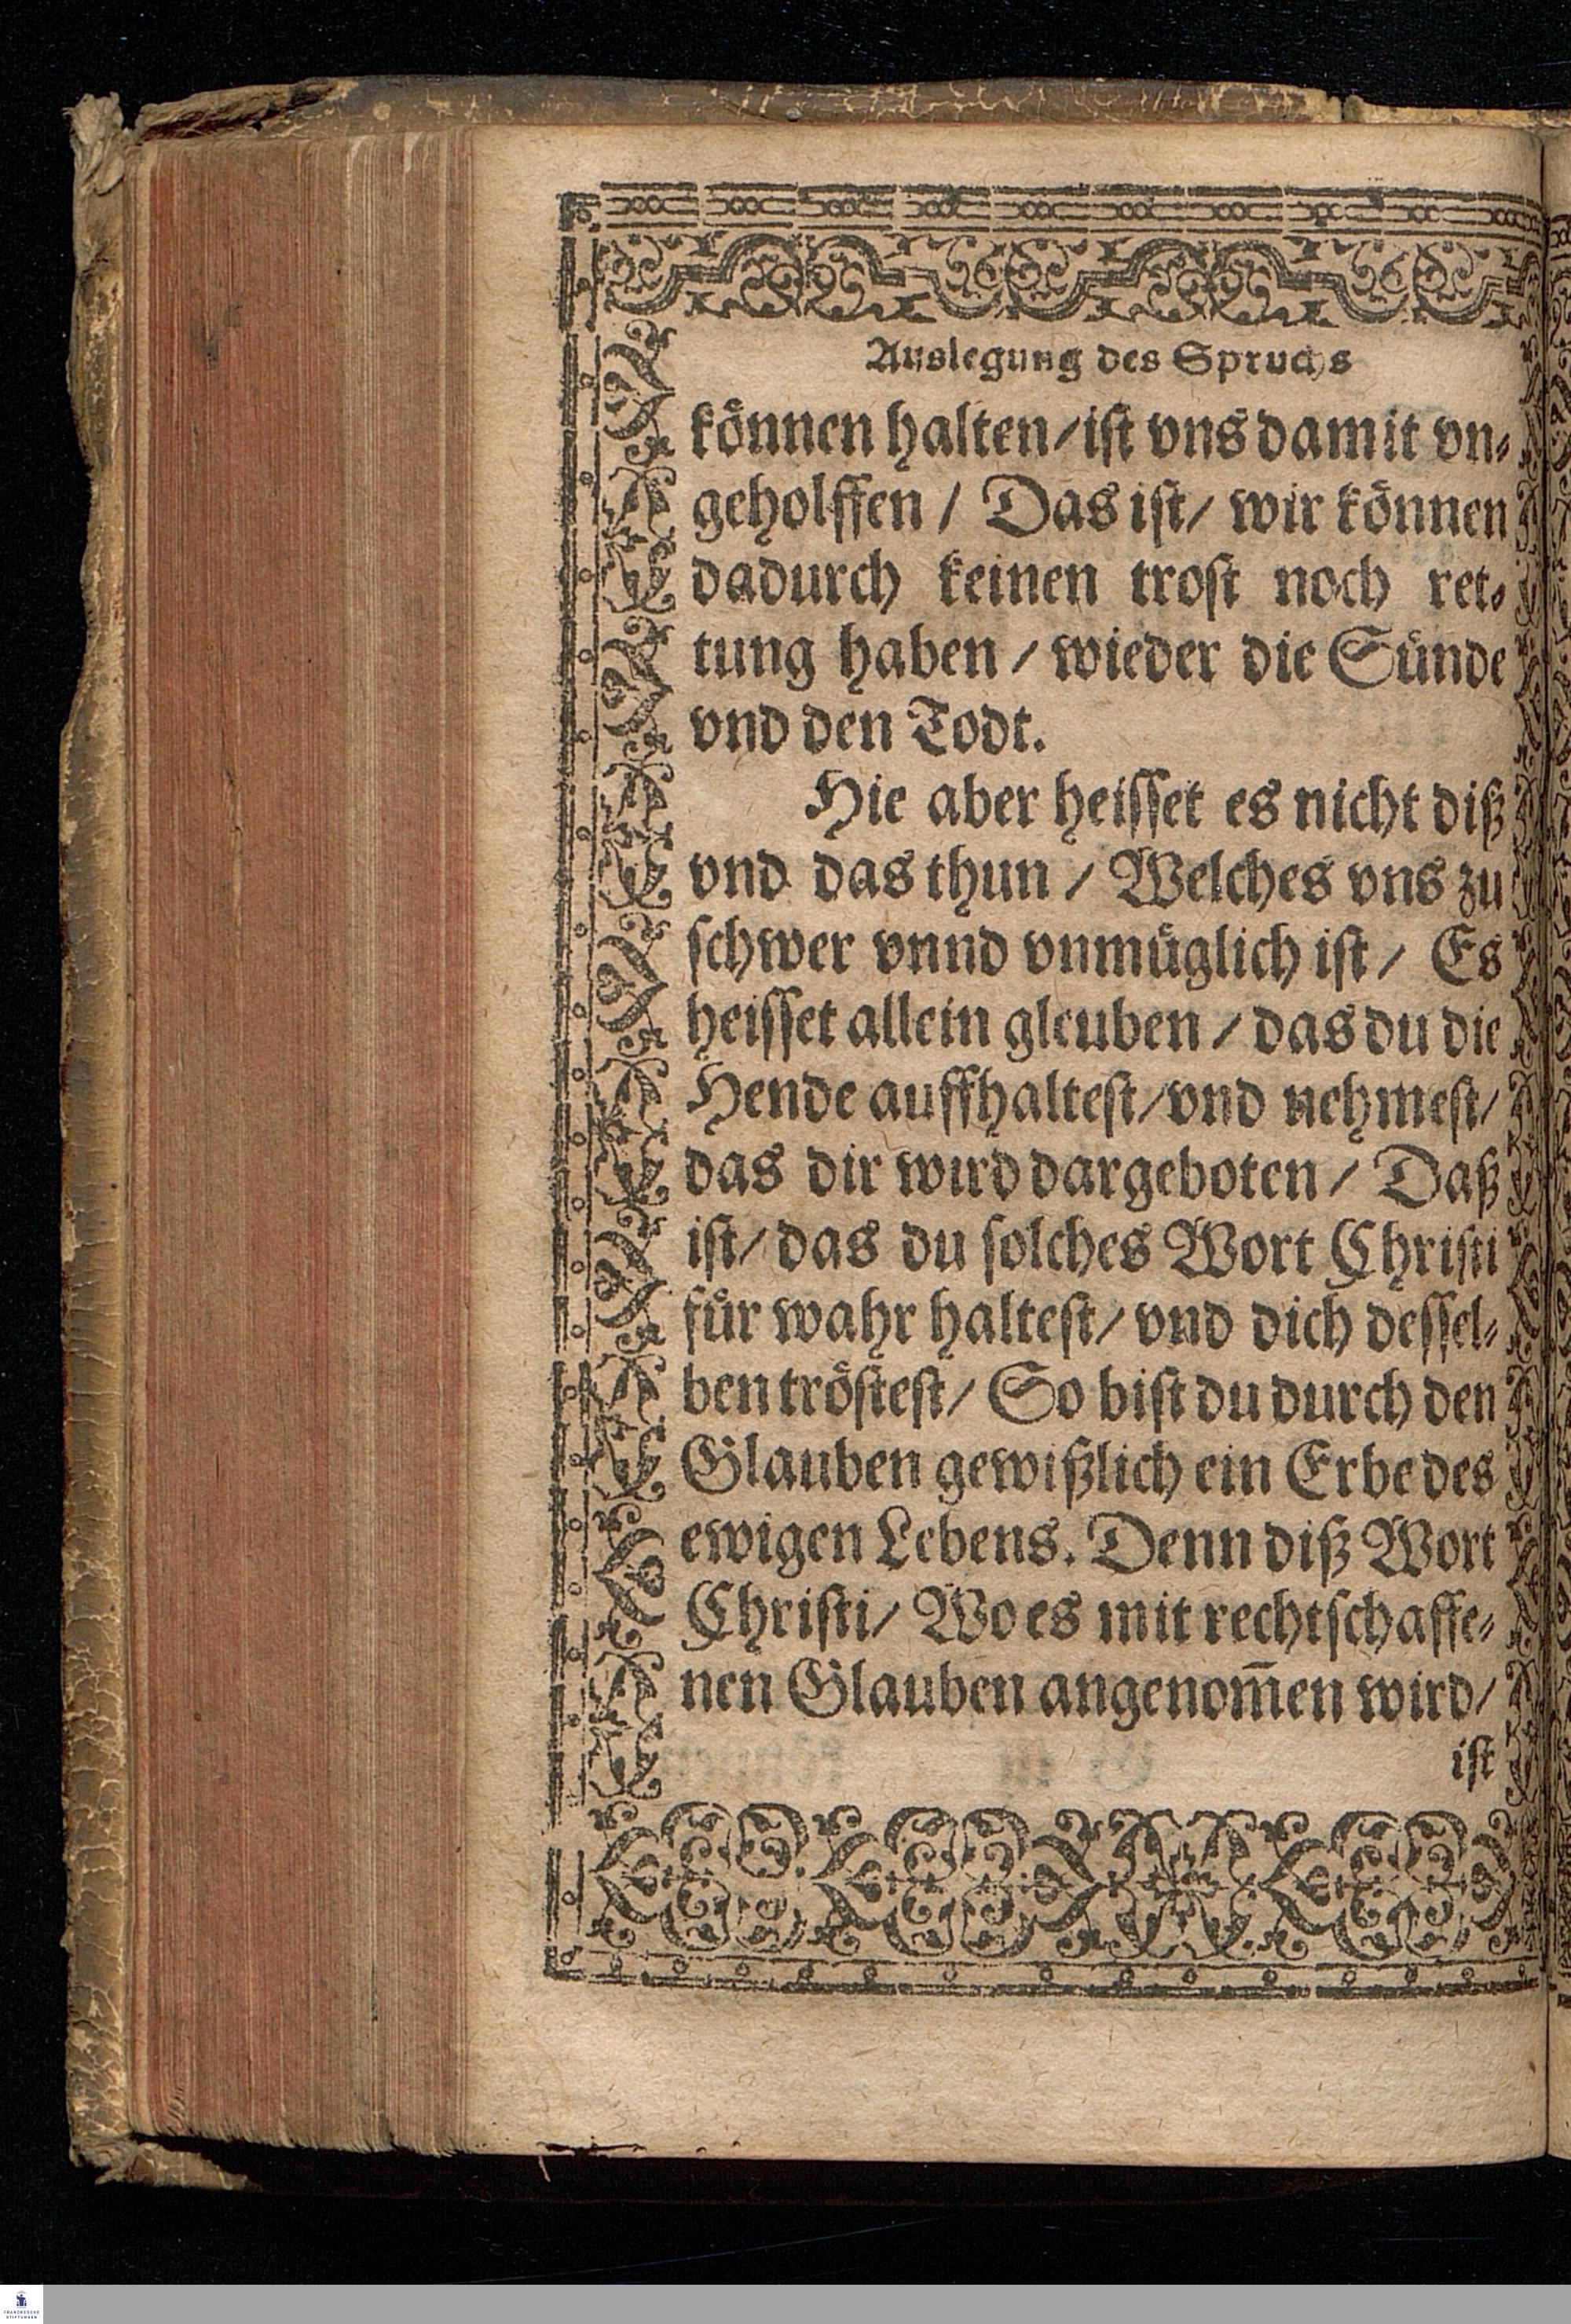 Auslegung des Spruchs
können halten/ist vns damit vn⸗
geholffen / Das ist/ wir können
dadurch keinen trost noch ret⸗
tung haben / wieder die Sünde
vnd den Todt.
Hie aber heisset es nicht diß
vnd das thun / Welches vns zu
schwer vnnd vnmüglich ist / Es
heisset allein gleuben / das du die
Hende auffhaltest/vnd nehmest/
das dir wird dargeboten / Daß
ist/ das du solches Wort Christi
für wahr haltest/ vnd dich dessel⸗
ben tröstest/ So bist du durch den
Glauben gewißlich ein Erbe des
ewigen Lebens. Denn diß Wort
Christi/ Wo es mit rechtschaffe⸗
nen Glauben angenom̃en wird/
ist
FRANCKESCHE
STIFTUNGEN